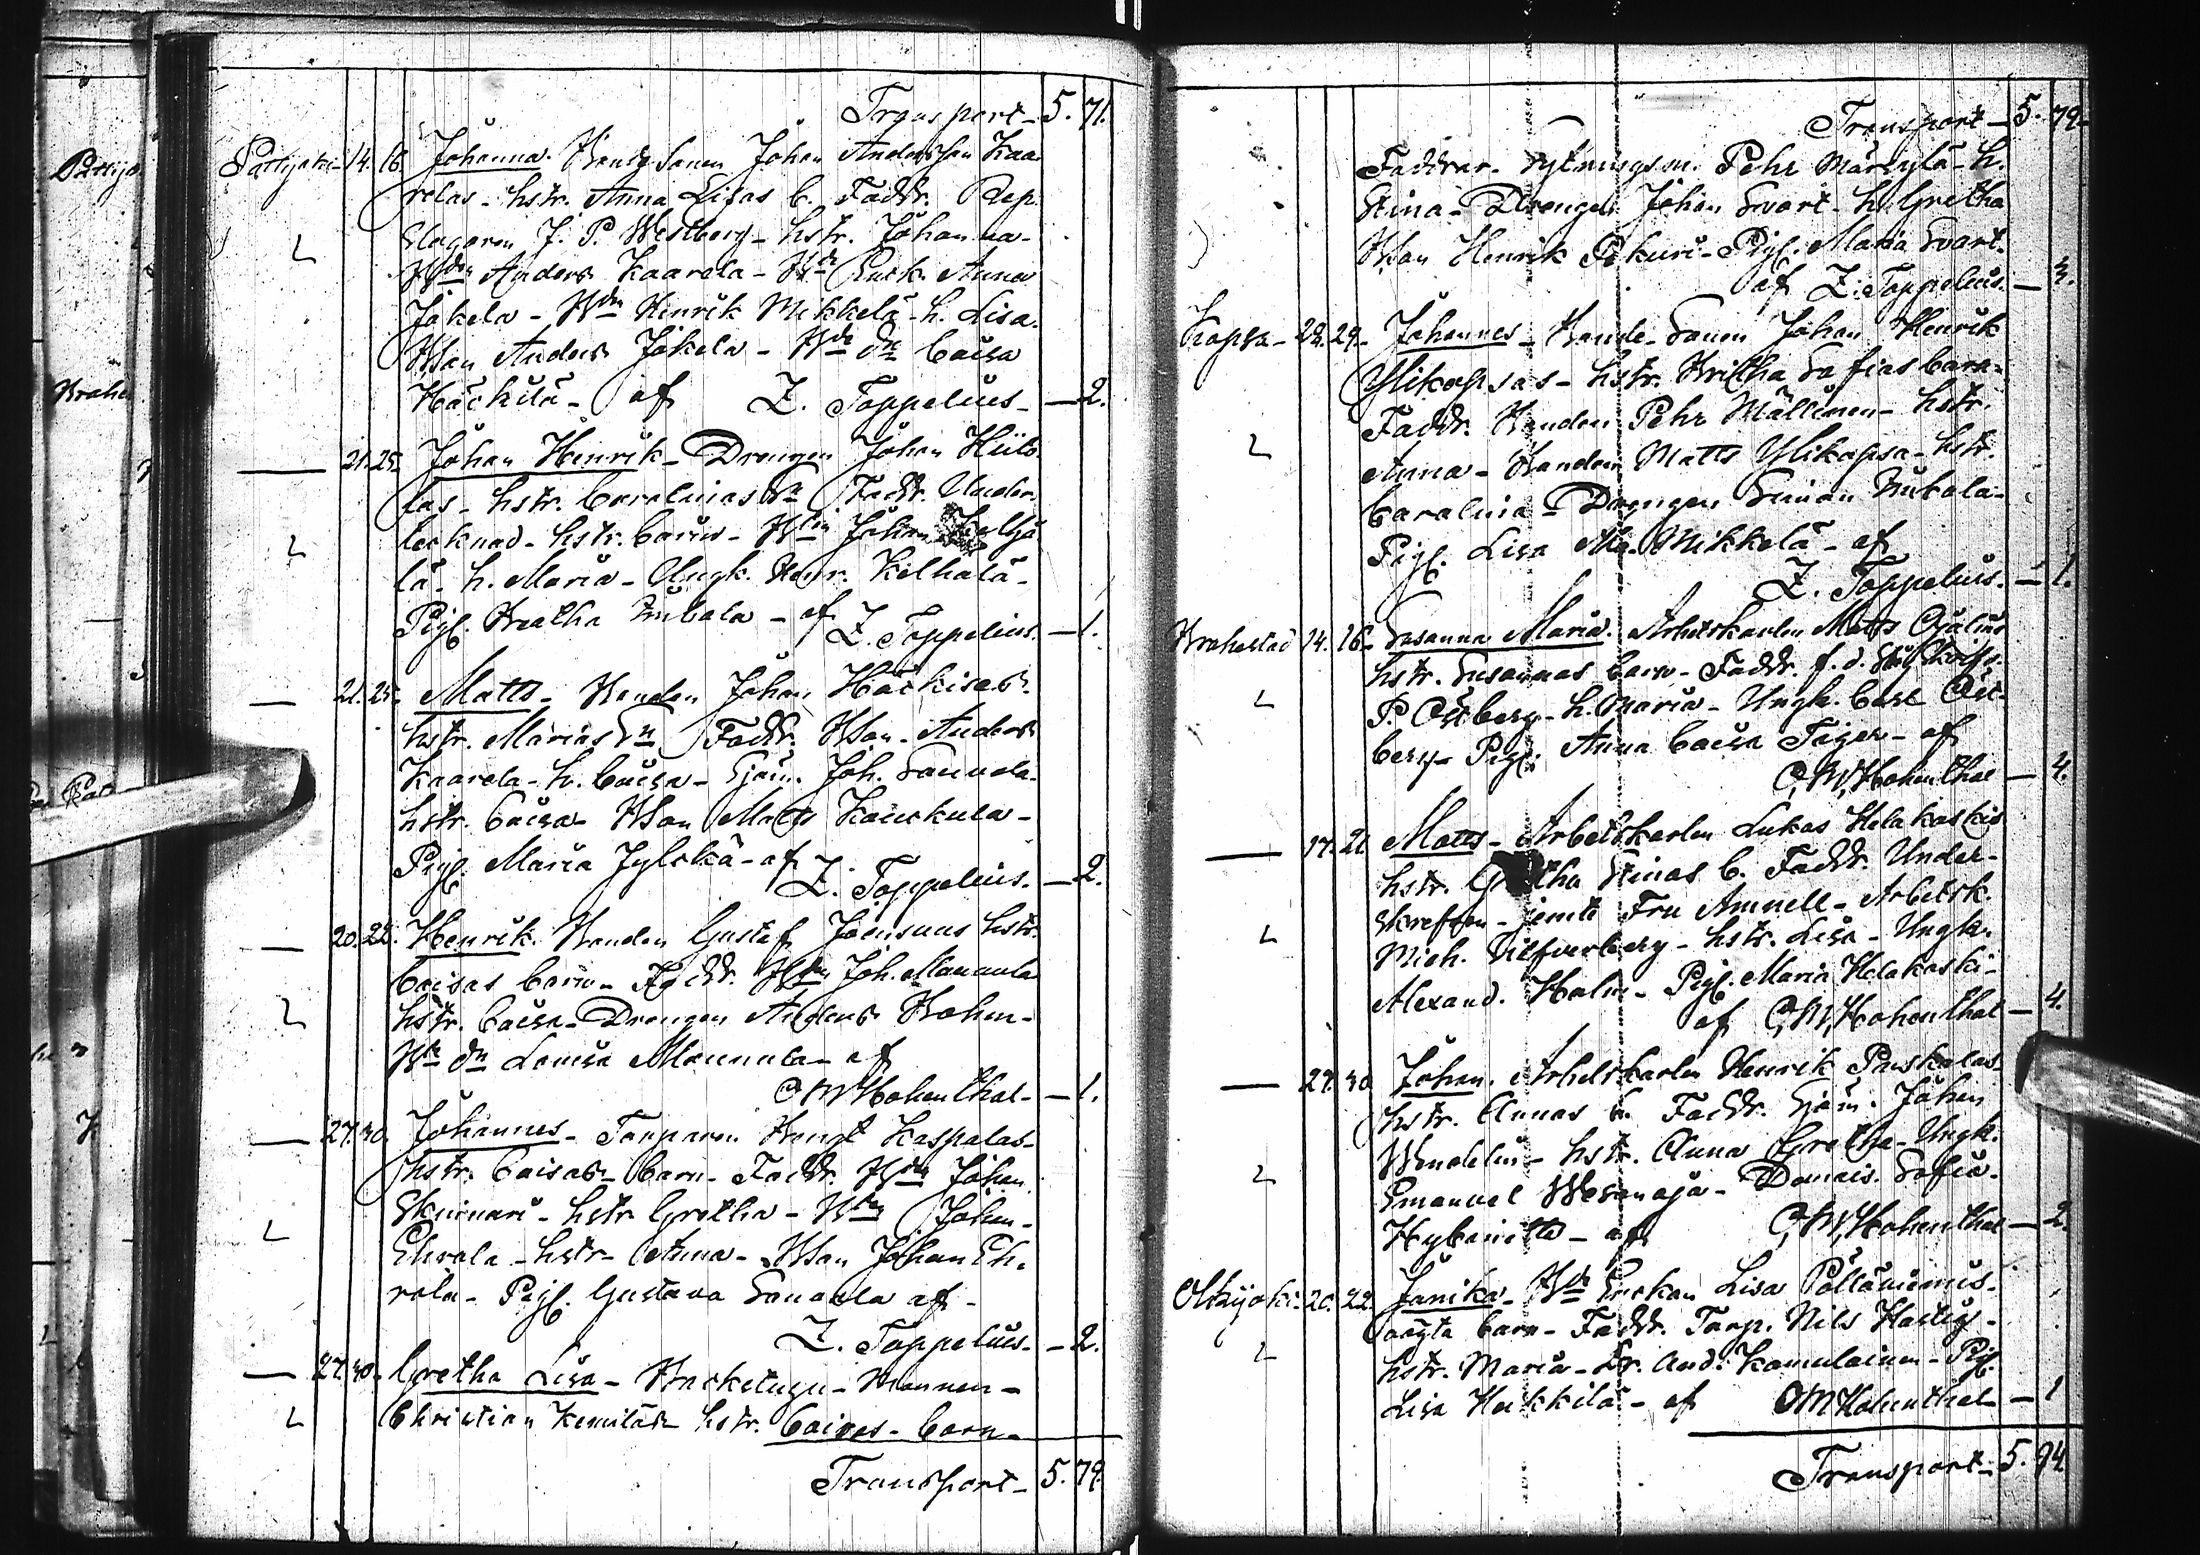 Transport - 5. 71.
Pattijoki - 14. 16. Johanna. Bondesonen Johan Andersson Kaa-
relas - hstr. Anna Lisas b. Faddr. Rep.
slagaren J. P. Westberg - hstr. Johanna -
Anders Kaarela - Enck. Anna
Jokela - Bdn Henrik Mikkelä - h. Lisa.
BSon Anders Jokela - Caisa
Häckilä - af Z. Toppelius - — 2.
— 21. 25. Johan Henrik - Drengen Johan Hiito-
las - hstr. Carolinas Sn Faddr. Under-
tecknad - hstr. Carin - Johan
lä - h. Maria - Ungk. Henr. Kelhälä -
Pig. Breatha - af Z. Toppelius. — 1.
— 21. 25. Matts - Bonden Johan Häckisas
hstr. Marias Sn Faddr. BSon Anders
Kaarela - h. Caisa - Sjöm. Joh. Sauvola -
hstr. Caisa - BSon Matts Kauckula -
Pig. Maria Jylckä - af
Z. Toppelius. — 2.
— 20. 22. Henrik. Bonden Gustaf Joensuus hstr.
Caisas barn - Faddr. Bdn Joh. Mannula
hstr. Caisa - Drengen Anders
Lovisa Mannula - af
C,W,Hohenthal - — 1.
— 27. 30. Johannes - Torparen Bengt Kaspalas -
hstr. Caisas barn - Faddr. Bdn Johan
Skurnari - hstr Gretha - Bdn Johan -
Ehrola - hstr - Anna - BSon Johan Eh-
rola - Pig. Gustava Sauvola af -
Z. Toppelius. — 2.
— 27. 30. Gretha Lisa - Backstugu-Mannen -
Christian Kemiläs hstr. Caisas - barn -
Transport - 5. 79.
Transport - 5. 79.
Faddrar - Pehr Märsylä - h.
Stina - Drengen Johan Svart - h. Gretha
BSon Henrik Pekuri - Pig. Maria Svart.
af Z. Toppelius. — 3.
Kopsa - 28. 29. Johannes - Bonde-Sonen Johan Henrik
Ylikopsas - hstr. Britha Sofias barn -
Faddr. Bonden Pehr Mällinen - hstr.
Anna - Bonden Matts Ylikopsa - hstr.
Carolina - Drengen Simon
Pig. Lisa Mikkelä - af
Z. Toppelius. — 1.
Brahestad 14. 16. Susanna Maria. Arbetskarlen Matts
hstr. Susannas barn - Faddr. f. d.
P. Östberg - h. Maria - Ungk. Carl Öst-
berg - Pig. Anna Caisa Tiger - af
C,W,Hohenthal — 4.
— 17. 21. Matts - Arbetskarlen Lukas Helakoskis
hstr. Gretha Stinas b. Faddr. Under-
skrefven - jemte Fru Amnell - Arbetsk.
Mich. Silfverberg - hstr. Lisa - Ungk.
Alexand. Holm - Pig. Maria Helakoski -
af C,W,Hohenthal — 4.
— 27. 30. Johan. Arbetskarlen Henrik Puskalas
hstr. Annas b. Faddr. Sjöm. Johan
Wendelin - hstr. Anna Gretha - Ungk.
Emanuel Wesanoja - Demois. Sofia -
af C,W,Hohenthal — 2.
Olkijoki 20. 22. Janika - Enckan Lisa
oägta barn - Faddr. Torp. Nils Hastig -
hstr. Maria - Dr. And. Kamulainen - Pig.
Lisa Heikkilä - af C W Hohenthal — 1
Transport - 5. 94